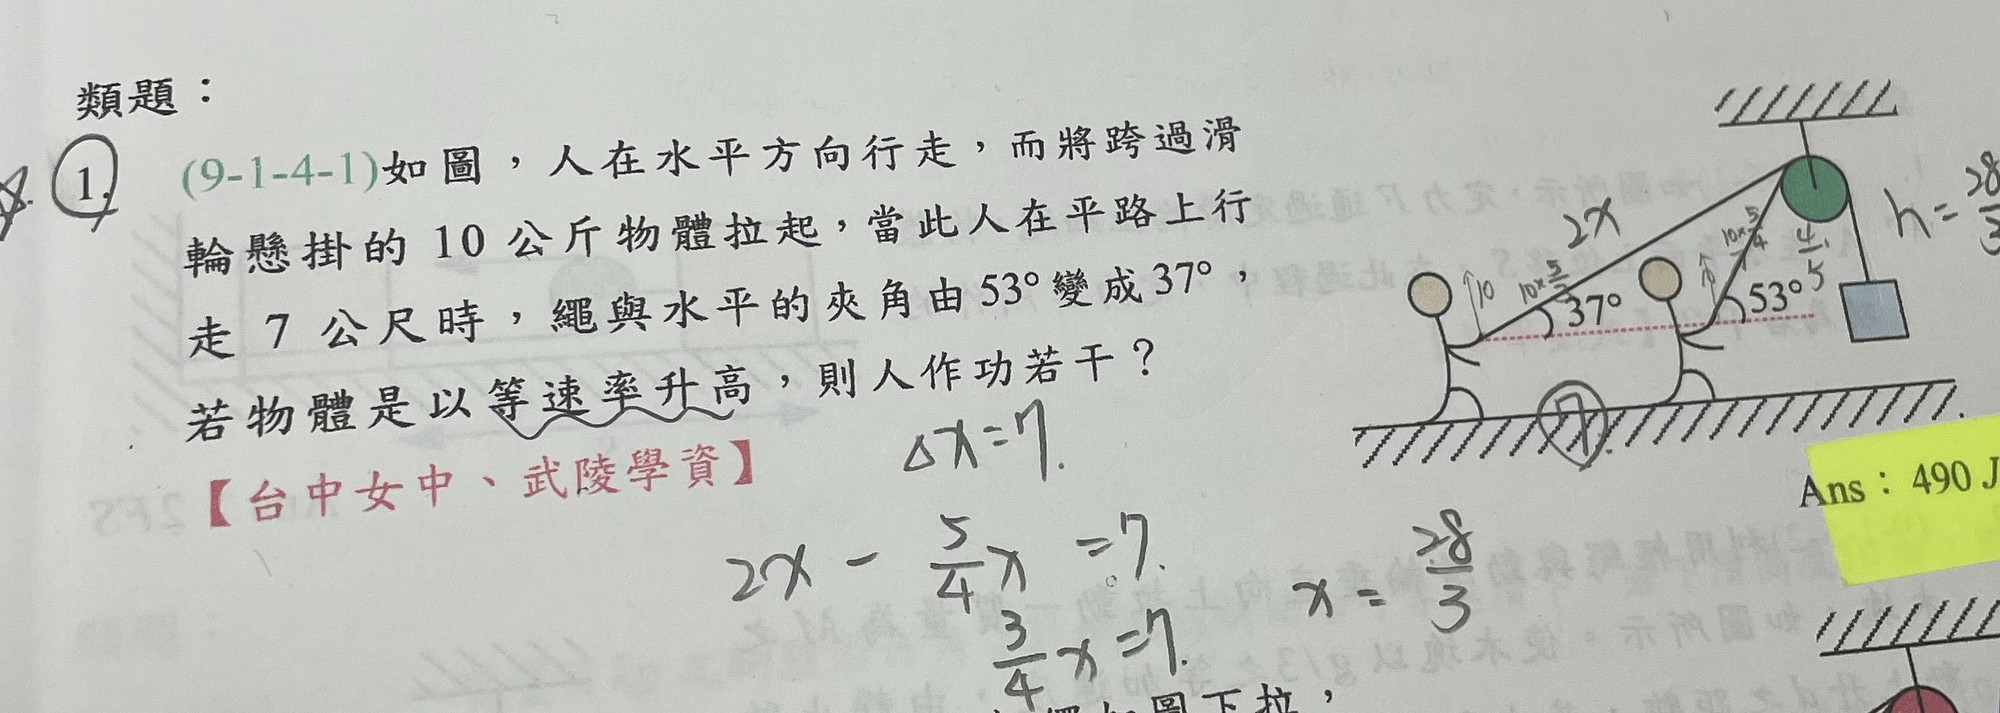 類題：
1. (9-1-4-1)如圖，人在水平方向行走，而將跨過滑
輪懸掛的 10 公斤物體拉起，當此人在平路上行
走 7 公尺時，繩與水平的夾角由 53° 變成 37°，
若物體是以等速率升高，則人作功若干？
【台中女中、武陵學資】
Δx=7.
2x - 5/4 x = 7.
3/4 x = 7.
x = 28/3
2x
h = 28/3
10
10×5/3
37°
10×5/4
4/5
53°
7
Ans：490 J